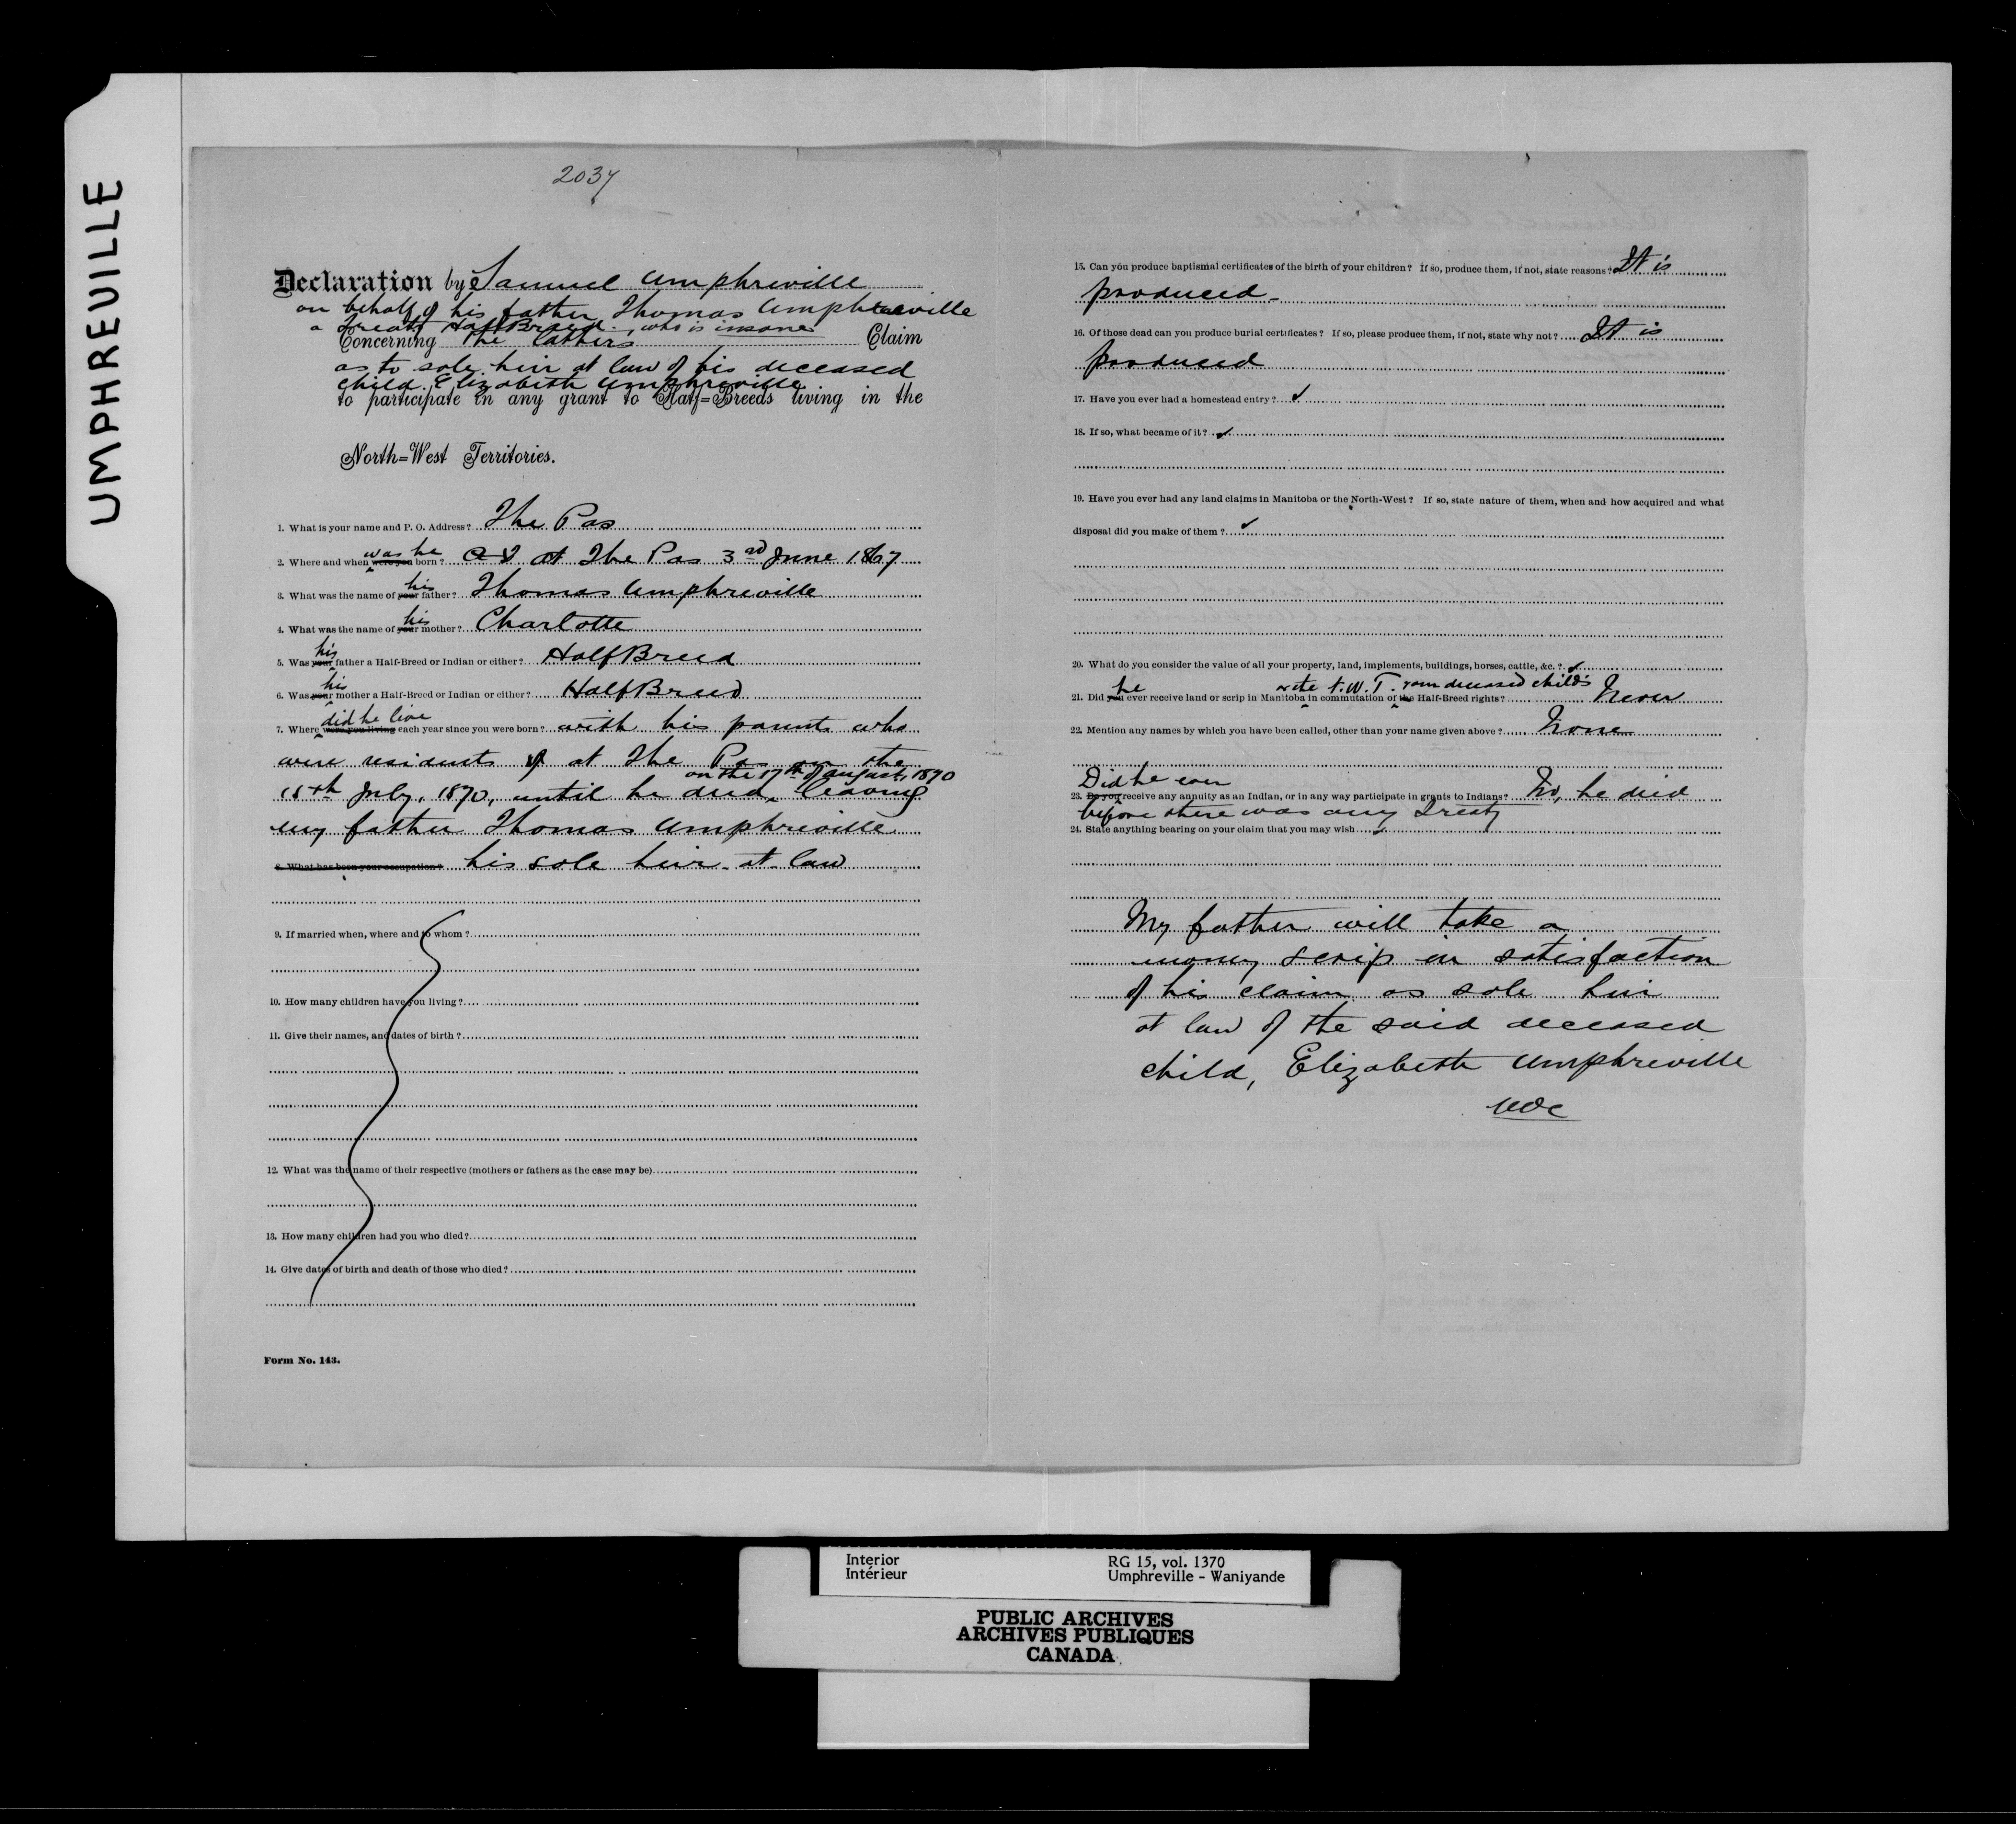 UMPHREVILLE
2037
Declaration by Samuel Umphreville
on behalf of his father Thomas Umphreville
a Treaty Half Breed who is insane
Concerning the father's Claim
as to sole heir at law of his deceased
child Elizabeth Umphreville
to participate in any grant to Half=Breeds living in the
North=West Territories.
1. What is your name and P. O. Address? The Pas
was he
2. Where and when were you born? at The Pas 3rd June 1867
his
3. What was the name of your father? Thomas Umphreville
his
4. What was the name of your mother? Charlotte
his
5. Was your father a Half-Breed or Indian or either? Half Breed
his
6. Was your mother a Half-Breed or Indian or either? Half Breed
did he live
7. Where were you living each year since you were born? with his parents who
were residents of at The Pas on the
on the 17th of August, 1870
15th July, 1870, until he died, leaving
my father Thomas Umphreville
8. What has been your occupation? his sole heir-at-law
9. If married when, where and to whom?
10. How many children have you living?
11. Give their names, and dates of birth?
12. What was the name of their respective (mothers or fathers as the case may be)
13. How many children had you who died?
14. Give dates of birth and death of those who died?
Form No. 143.
15. Can you produce baptismal certificates of the birth of your children? If so, produce them, if not, state reasons? It is
produced-
16. Of those dead can you produce burial certificates? If so, please produce them, if not, state why not? It is
produced
17. Have you ever had a homestead entry? ✓
18. If so, what became of it? ✓
19. Have you ever had any land claims in Manitoba or the North-West? If so, state nature of them, when and how acquired and what
disposal did you make of them? ✓
20. What do you consider the value of all your property, land, implements, buildings, horses, cattle, &c.? ✓
he or the N.W.T. your deceased child's
21. Did you ever receive land or scrip in Manitoba in commutation of the Half-Breed rights? Never
22. Mention any names by which you have been called, other than your name given above? None
Did he ever
23. Do you receive any annuity as an Indian, or in any way participate in grants to Indians? No, he died
before there was any Treaty
24. State anything bearing on your claim that you may wish ✓
My father will take a
money scrip in satisfaction
of his claim as sole heir
at law of the said deceased
child, Elizabeth Umphreville
Interior RG 15, vol. 1370
Intérieur Umphreville - Waniyande
PUBLIC ARCHIVES
ARCHIVES PUBLIQUES
CANADA